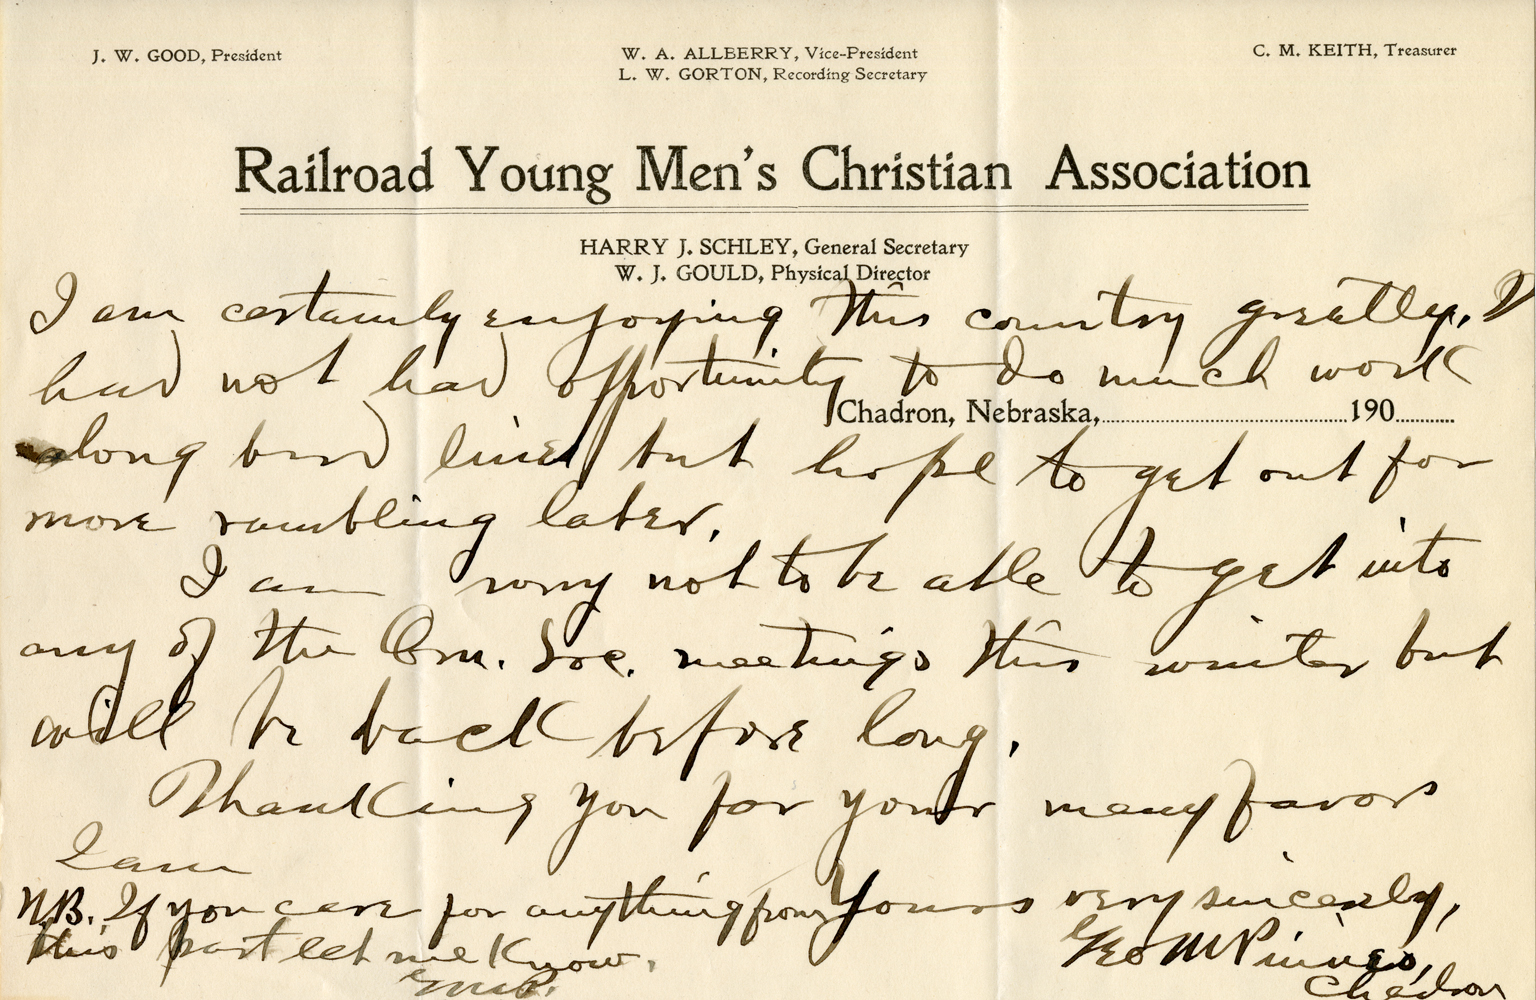 J. W. GOOD, President
W. A. ALLBERRY, Vice-President
C. M. KEITH, Treasurer
L. W. GORTON, Recording Secretary
Railroad Young Men's Christian Association
HARRY J. SCHLEY, General Secretary
W. J. GOULD, Physical Director
I am certainly enjoying this country greatly. I
had not had opportunity to do much work
Chadron, Nebraska, 190
along bird lines but hope to get out for
more rambling later.
I am sorry not to be able to get into
any of the Orn. Soc. meetings this winter but
will be back before long.
Thanking you for your many favors
I am
Yours very sincerely,
Geo M Pinneo,
Chadron
N.B. If you care for anything from
this part let me know.
GMP.